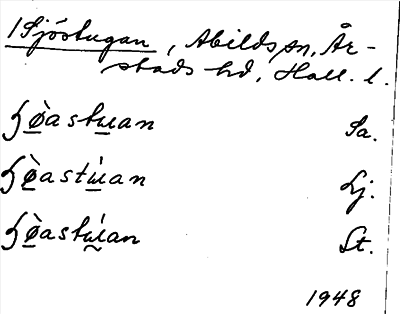 /Sjöstugan, Abilds sn, År-
stads hd, Hall. l.
ɧø̠̀astu̠an Sa.
ɧø̠̀astu̠̇an Lj.
ɧø̠̀astṵ́an St.
1948